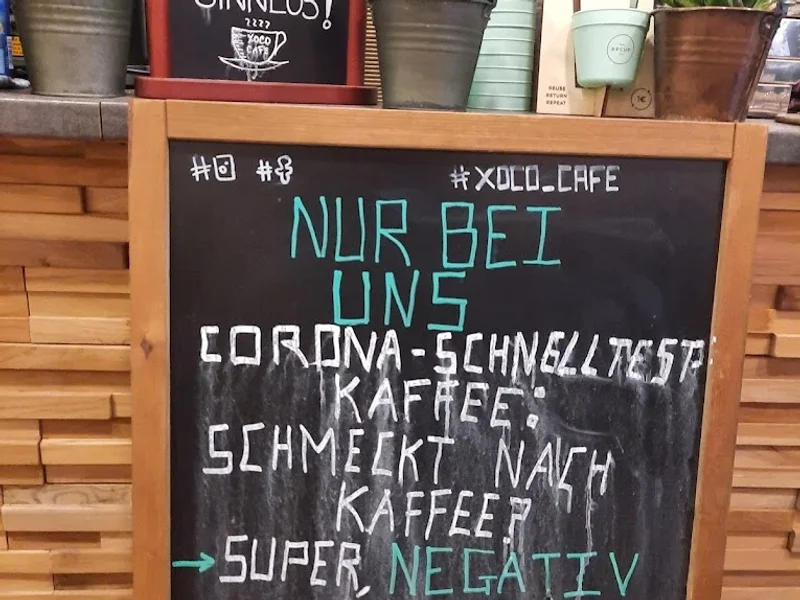 SINNLOS!
XOCO
CAFE
RECUP
REUSE
RETURN
REPEAT
1€
# #
#XOCO_CAFE
NUR BEI
UNS
CORONA-SCHNELLTEST-
KAFFEE:
SCHMECKT NACH
KAFFEE?
→SUPER, NEGATIV